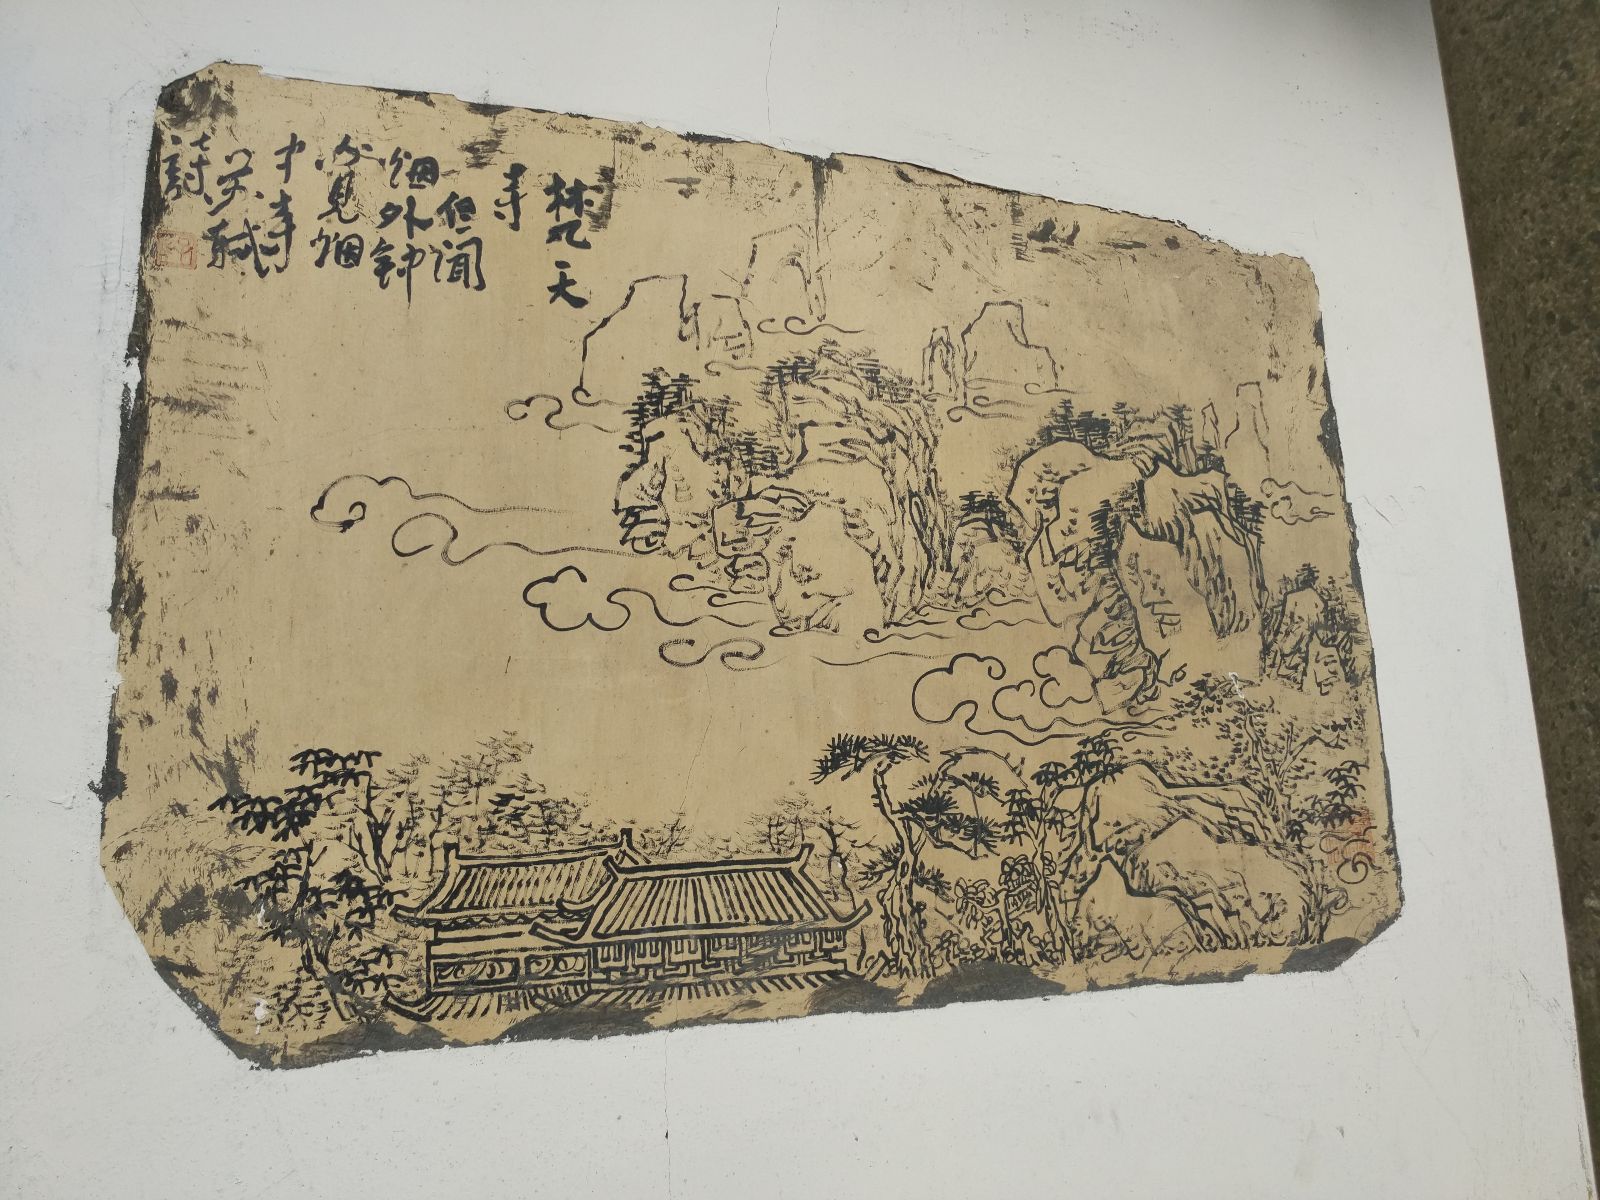 梵天
寺
但闻
烟外钟
不見烟
中寺
苏轼
詩